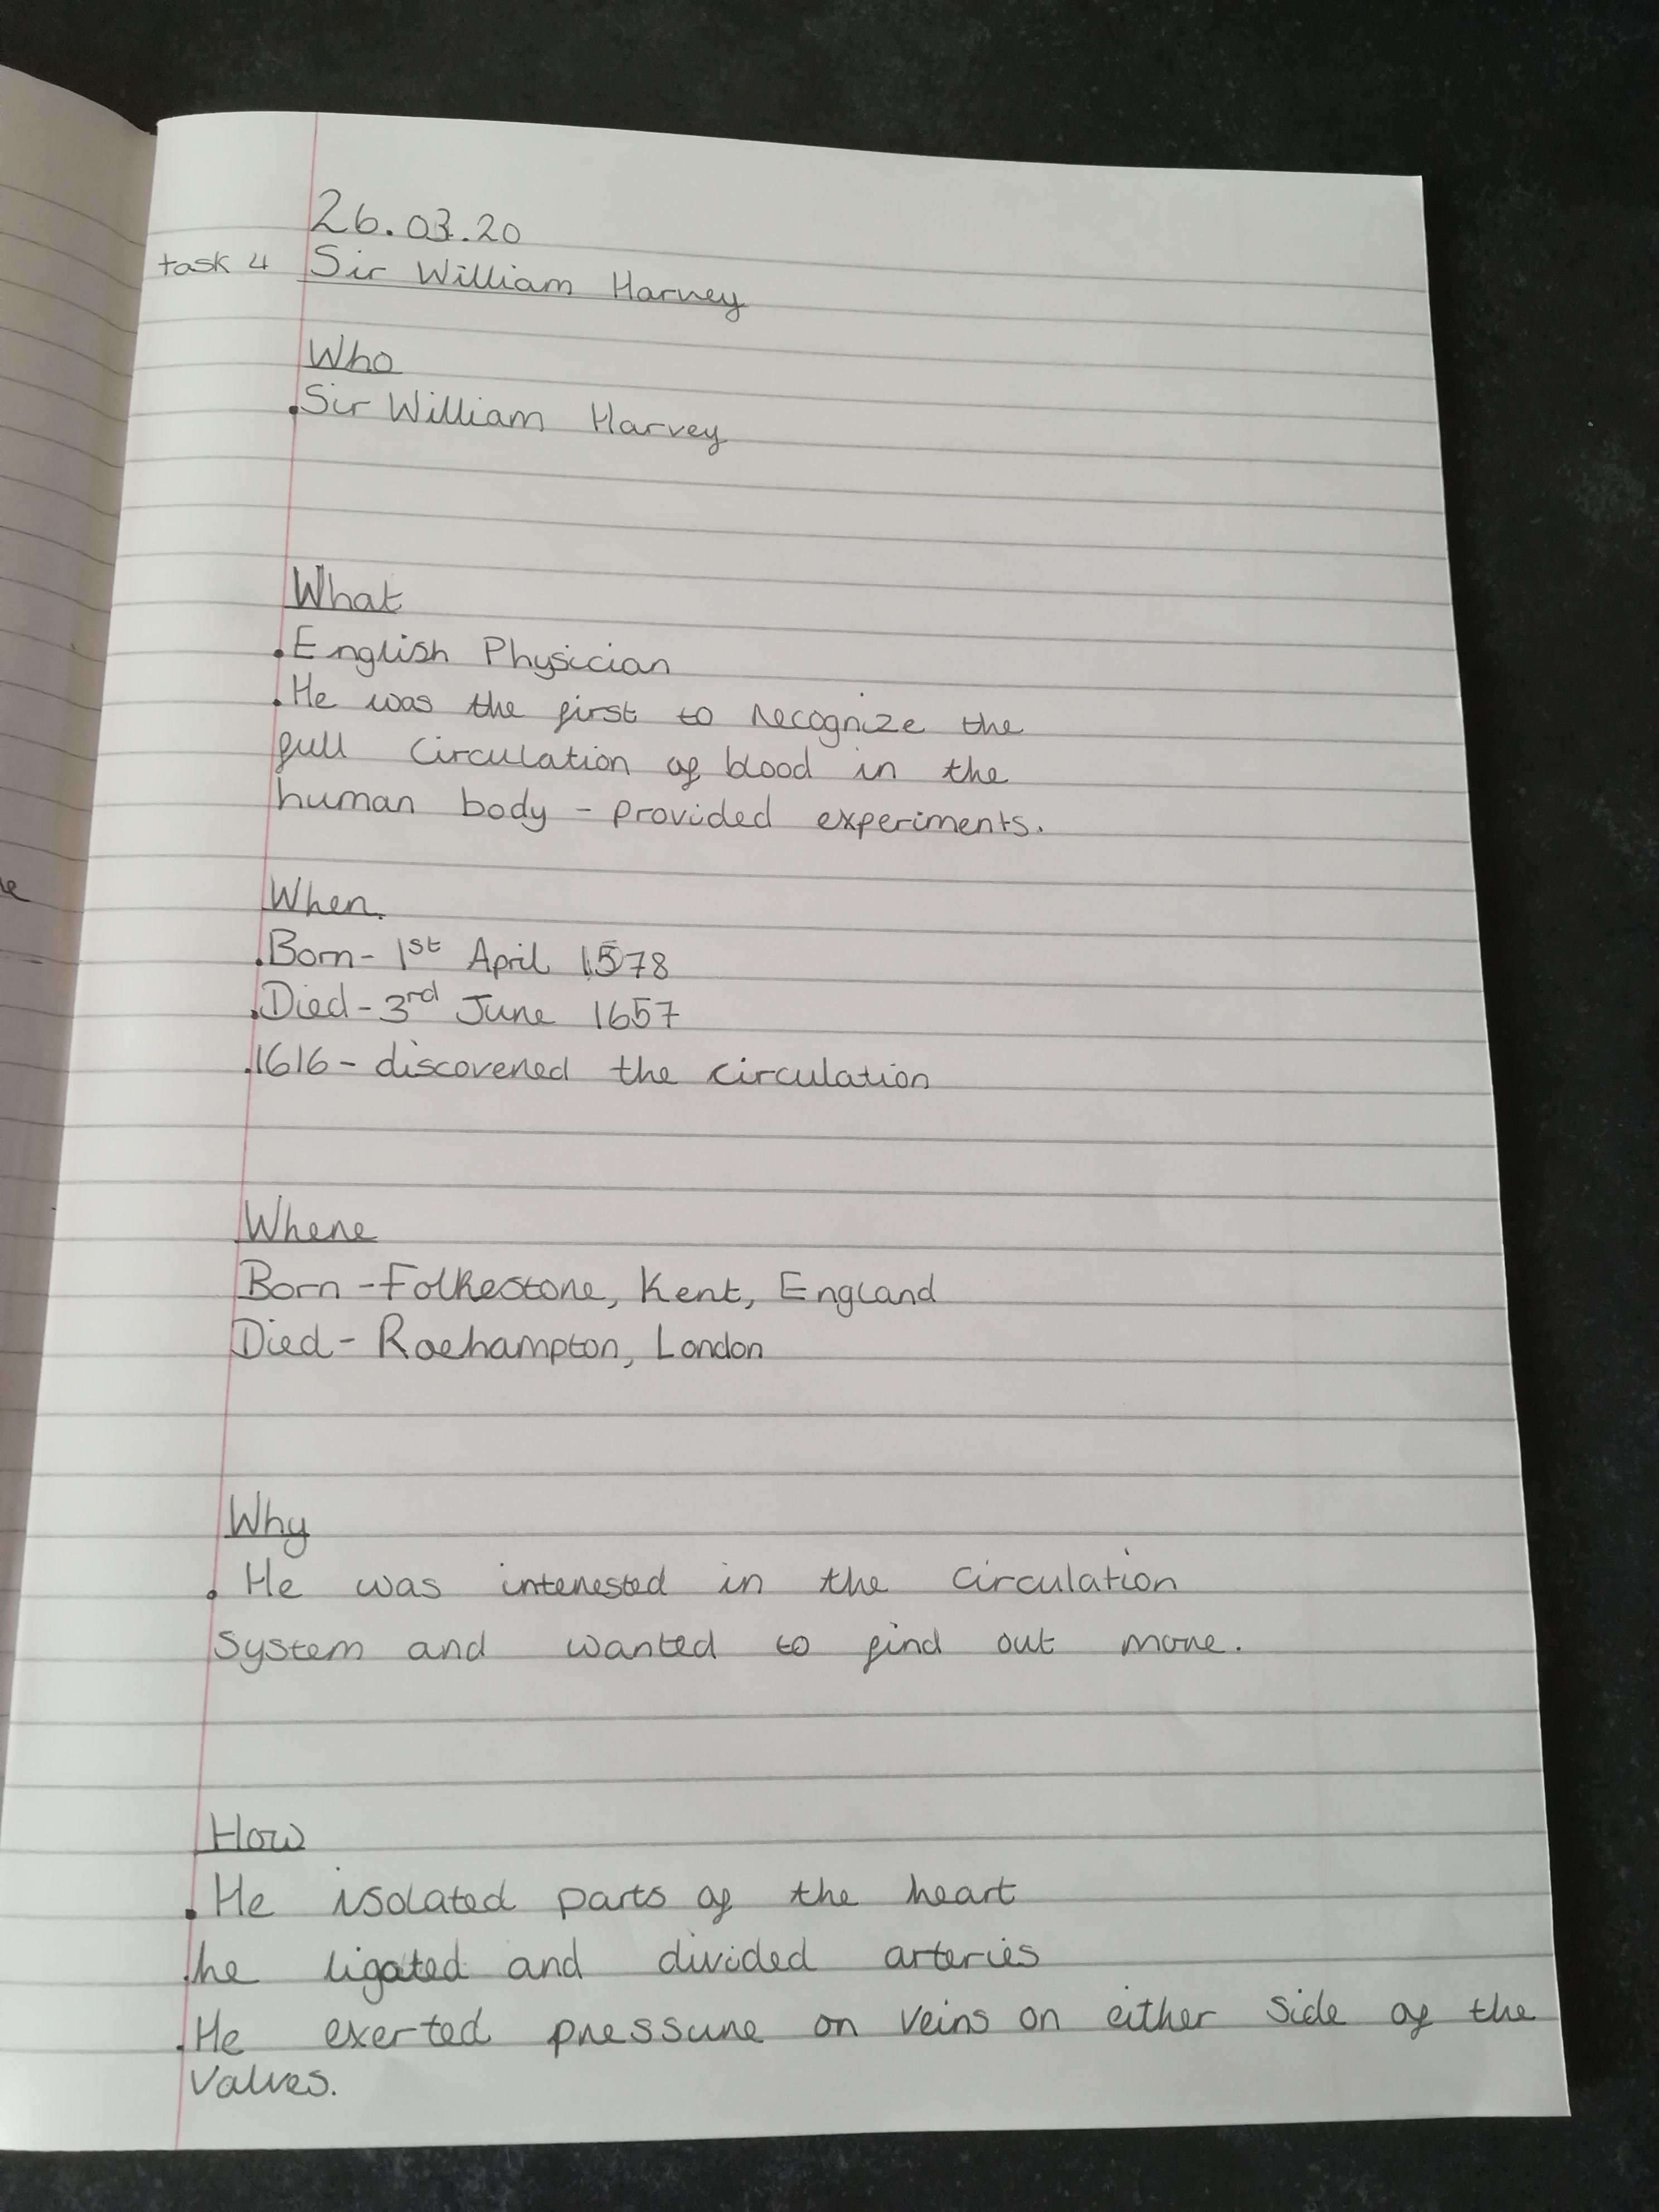 26.03.20
task 4 Sir William Harvey
Who
. Sir William Harvey
What
. English Physician
. He was the first to recognize the
full circulation of blood in the
human body - provided experiments.
When.
. Born - 1st April 1578
. Died - 3rd June 1657
. 1616 - discovered the circulation
Where
Born - Folkestone, Kent, England
Died - Roehampton, London
Why
. He was interested in the circulation
system and wanted to find out more.
How
. He isolated parts of the heart
. he ligated and divided arteries
. He exerted pressure on veins on either side of the
valves.